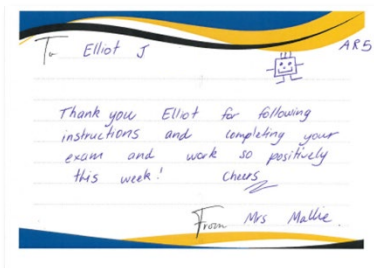 To Elliot J
AR5
Thank you Elliot for following
instructions and completing your
exam and work so positively
this week! Cheers
From Mrs Mallie.